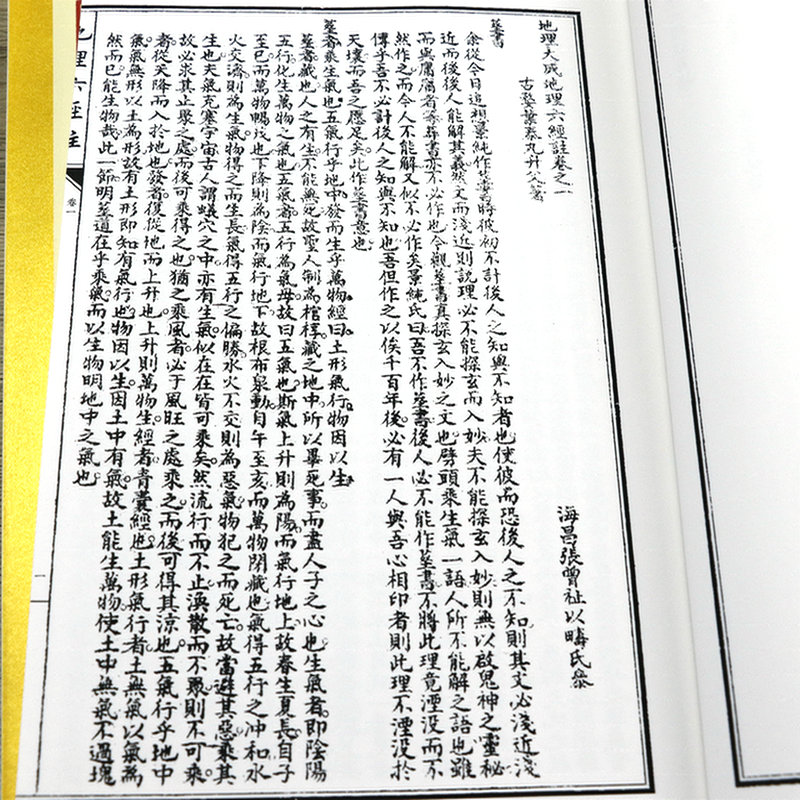 地理大成地理六經註卷之一
古婺葉泰九升父著
海昌張曾祉以疇氏叅
葬書
余從今日追想景純作葬書時彼初不計後人之知與不知者也使彼而恐後人之不知則其文必淺近淺
近而後後人能解其義然文而淺近則說理必不能探玄而入妙夫不能探玄入妙則無以啟鬼神之靈秘
而與庸腐者等葬書亦不必作也今觀葬書真探玄入妙之文也劈頭乘生氣一語人所不能解之語也雖
然作之而令人不能解又似不必作矣景純氏曰吾不作葬書後人必不能作葬書不將此理竟湮没而不
傳乎吾不必計後人之知與不知也吾但作之以俟千百年後必有一人與吾心相印者則此理不湮没於
天壤而吾之愿足矣此作葬書意也
葬者乘生氣也五氣行乎地中發而生乎萬物經曰土形氣行物因以生
葬者藏也人之有生不能無死故聖人制為棺椁藏之地中所以畢死事而盡人子之心也生氣者即陰陽
五行化生萬物之氣也五氣者五行為氣母故曰五氣也斯氣上升則為陽而氣行地上故春生夏長自子
至巳而萬物暢茂也下降則為陰而氣行地下故根布泉動自午至亥而萬物閉藏也氣得五行之冲和水
火交濟則為生氣物得之而生長氣得五行之偏勝水火不交則為惡氣物犯之而死亡故當避其惡乘其
生也夫氣充塞宇宙古人謂蟻穴之中亦有生氣似在在皆可乘矣然流行而不止渙散而不聚則不可乘
故必求其止聚之處而後可乘得之也猶之乘風者必于風旺之處乘之而後可得其涼也五氣行乎地中
者從天降而入於地也發者復從地而上升也上升則萬物生經者青囊經也土形氣行者土無氣以氣為
氣氣無形以土為形故有土形即知有氣行也物因以生因土中有氣故土能生萬物使土中無氣不過塊
然而已能生物哉此一節明葬道在乎乘氣而以生物明地中之氣也
地理六經註
卷一
一